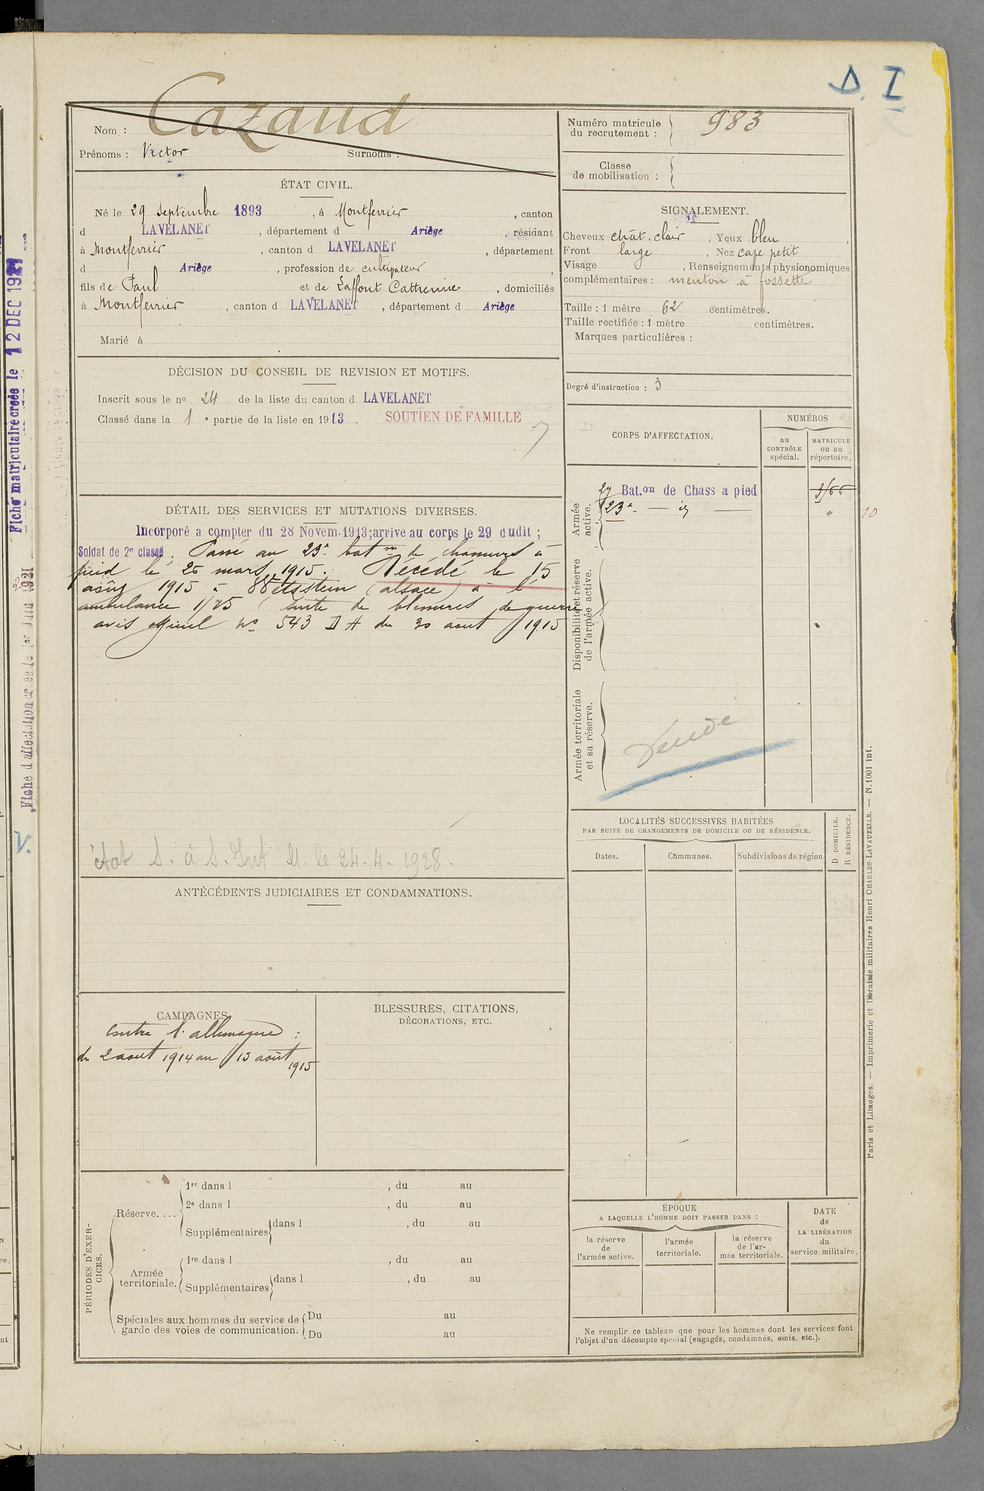 D. I
Nom : Cazaud
Prénoms : Victor Surnoms :
Numéro matricule du recrutement : 983
Classe de mobilisation :
ÉTAT CIVIL.
Né le 29 Septembre 1893, à Montferrier, canton
d LAVELANET, département d Ariège, résidant
à Montferrier, canton d LAVELANET, département
d Ariège, profession de cultivateur
fils de Paul et de Laffont Catherine, domiciliés
à Montferrier, canton d LAVELANET, département d Ariège
Marié à
SIGNALEMENT.
Cheveux chât. clair, Yeux bleu
Front large, Nez cave petit
Visage , Renseignements physionomiques
complémentaires : menton à fossette
Taille : 1 mètre 62 centimètres.
Taille rectifiée : 1 mètre centimètres.
Marques particulières :
Degré d'instruction : 3
DÉCISION DU CONSEIL DE REVISION ET MOTIFS.
Inscrit sous le nº 24 de la liste du canton d LAVELANET
Classé dans la 1e partie de la liste en 1913. SOUTIEN DE FAMILLE
DÉTAIL DES SERVICES ET MUTATIONS DIVERSES.
Incorporé a compter du 28 Novem. 1913; arrive au corps le 29 dudit ;
Soldat de 2e classe. Passé au 23e baton de chasseurs à
pied le 25 mars 1915. Décédé le 15
août 1915 à Wettstein (alsace) à l
ambulance 1/75 (suite de blessures de guerre)
avis officiel Nº 543 D A du 30 aout 1915
état S. à S. Int. M. le 24-4-1928.
CORPS D'AFFECTATION.
NUMÉROS
au CONTRÔLE spécial.
MATRICULE ou au répertoire.
Armée active.
27 Bat.on de Chass a pied
23e — id —
10
Disponibilité et réserve de l'armée active.
Armée territoriale et sa réserve.
LOCALITÉS SUCCESSIVES HABITÉES
PAR SUITE DE CHANGEMENTS DE DOMICILE OU DE RÉSIDENCE.
Dates. Communes. Subdivisions de région
D DOMICILE.
R RÉSIDENCE.
ANTÉCÉDENTS JUDICIAIRES ET CONDAMNATIONS.
CAMPAGNES
Contre l'allemagne :
du 2 aout 1914 au 15 août
1915
BLESSURES, CITATIONS,
DÉCORATIONS, ETC.
PÉRIODES D'EXERCICES.
Réserve. . . .
1re dans l , du au
2e dans l , du au
Supplémentaires dans l , du au
Armée territoriale.
1re dans l , du au
Supplémentaires dans l , du au
Spéciales aux hommes du service de
garde des voies de communication.
Du au
Du au
ÉPOQUE
A LAQUELLE L'HOMME DOIT PASSER DANS :
la réserve de l'armée active.
l'armée territoriale.
la réserve de l'armée territoriale.
DATE de LA LIBÉRATION du service militaire.
Ne remplir ce tableau que pour les hommes dont les services font
l'objet d'un décompte spécial (engagés, condamnés, omis, etc.).
Paris et Limoges. — Imprimerie et librairie militaires Henri CHARLES-LAVAUZELLE. — N. 1001 int.
Fiche matriculaire créée le 12 DEC 1921
Fiche d'affectation créée le
V.